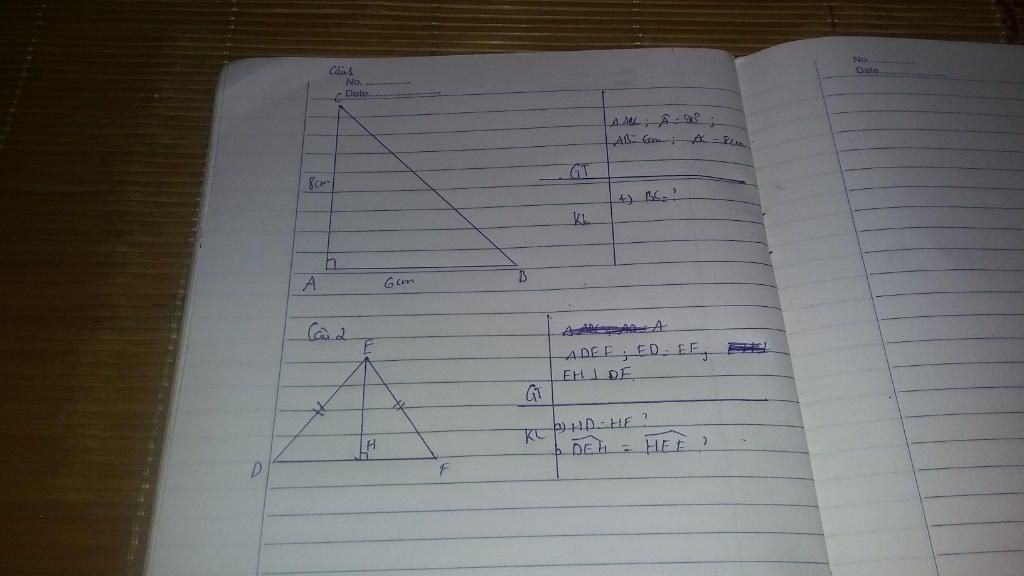 Câu 1
No.
Date
C
8cm
A
6cm
B
GT
Δ ABC ; Â = 90° ;
AB = 6cm ; AC = 8cm
KL
+) BC = ?
Câu 2
E
D
H
F
GT
Δ DEF ; ED = EF ;
EH ⊥ DF.
KL
a) HD = HF ?
b) DEH = HEF ?
No.
Date